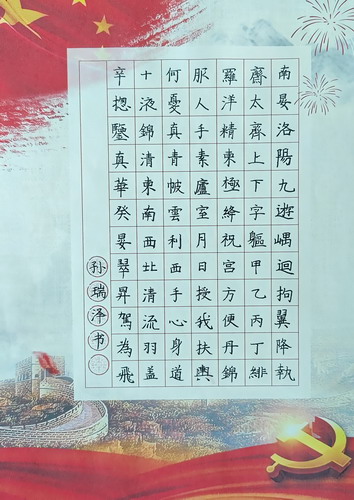 南晏洛陽九遊嵎迴拘翼降執
齋太齊上下字軀甲乙丙丁緋
羅洋精東極絳祝宮方便丹錦
服人手素廬室月日授我扶輿
何憂真青帔雲利西手心身道
十液錦清東南西北清流羽蓋
辛揔鑒真華癸晏翠昇駕為飛
孙瑞泽书